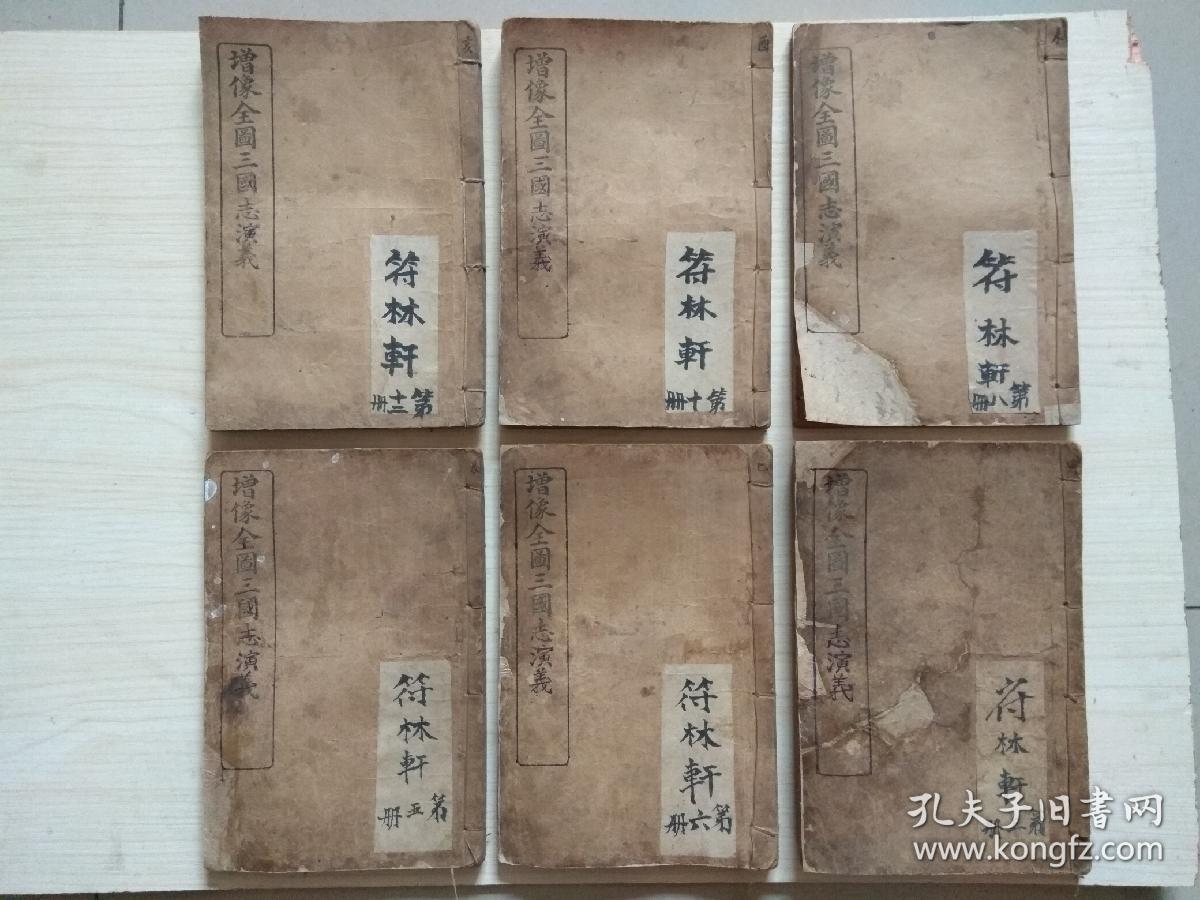 亥
增像全圖三國志演義
符林軒
第十二册
酉
增像全圖三國志演義
符林軒
第十册
未
增像全圖三國志演義
符林軒
第八册
增像全圖三國志演義
符林軒
第五册
巳
增像全圖三國志演義
符林軒
第六册
增像全圖三國志演義
符林軒
第二册
孔夫子旧書网
www.kongfz.com